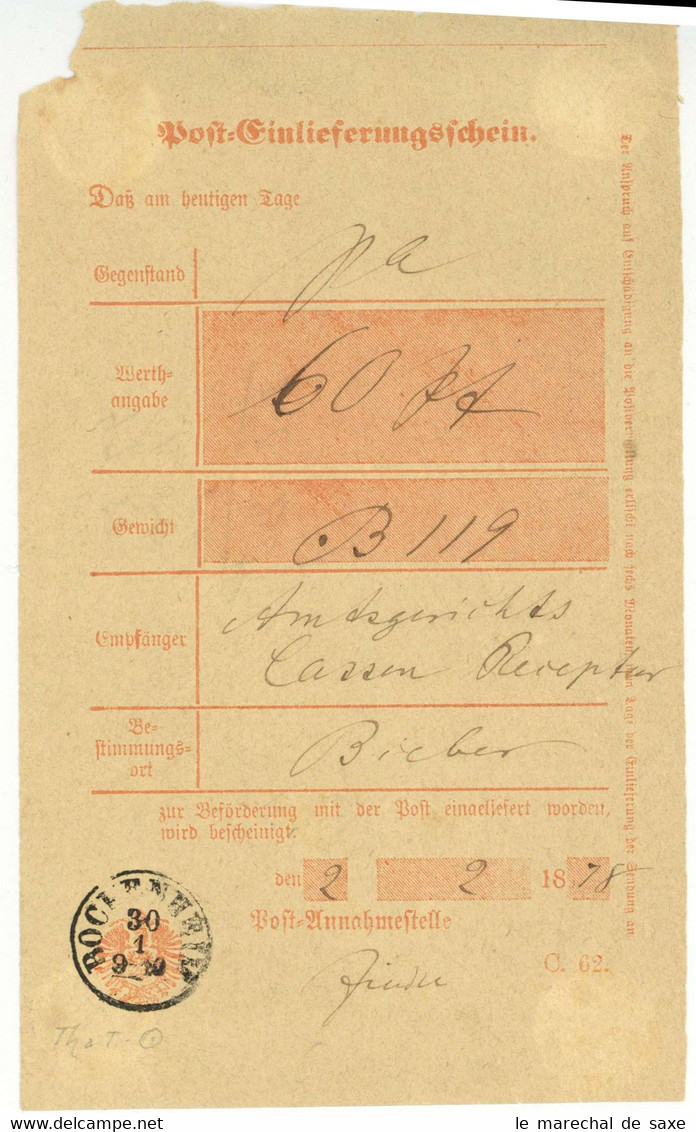 Post-Einlieferungsschein.
Daß am heutigen Tage
Gegenstand
pa
Werth-
angabe
60 pf
Gewicht
B 119
Empfänger
Amtsgerichts
Cassen Receptur
Be-
stimmungs-
ort
Bieber
zur Beförderung mit der Post eingeliefert worden,
wird bescheinigt.
den 2 2 1878
Post-Annahmestelle
C. 62.
BOCKENHEIM
30
1
9-10
Der Anspruch auf Entschädigung an die Postverwaltung erlischt nach sechs Monaten, vom Tage der Einlieferung der Sendung an
le marechal de saxe